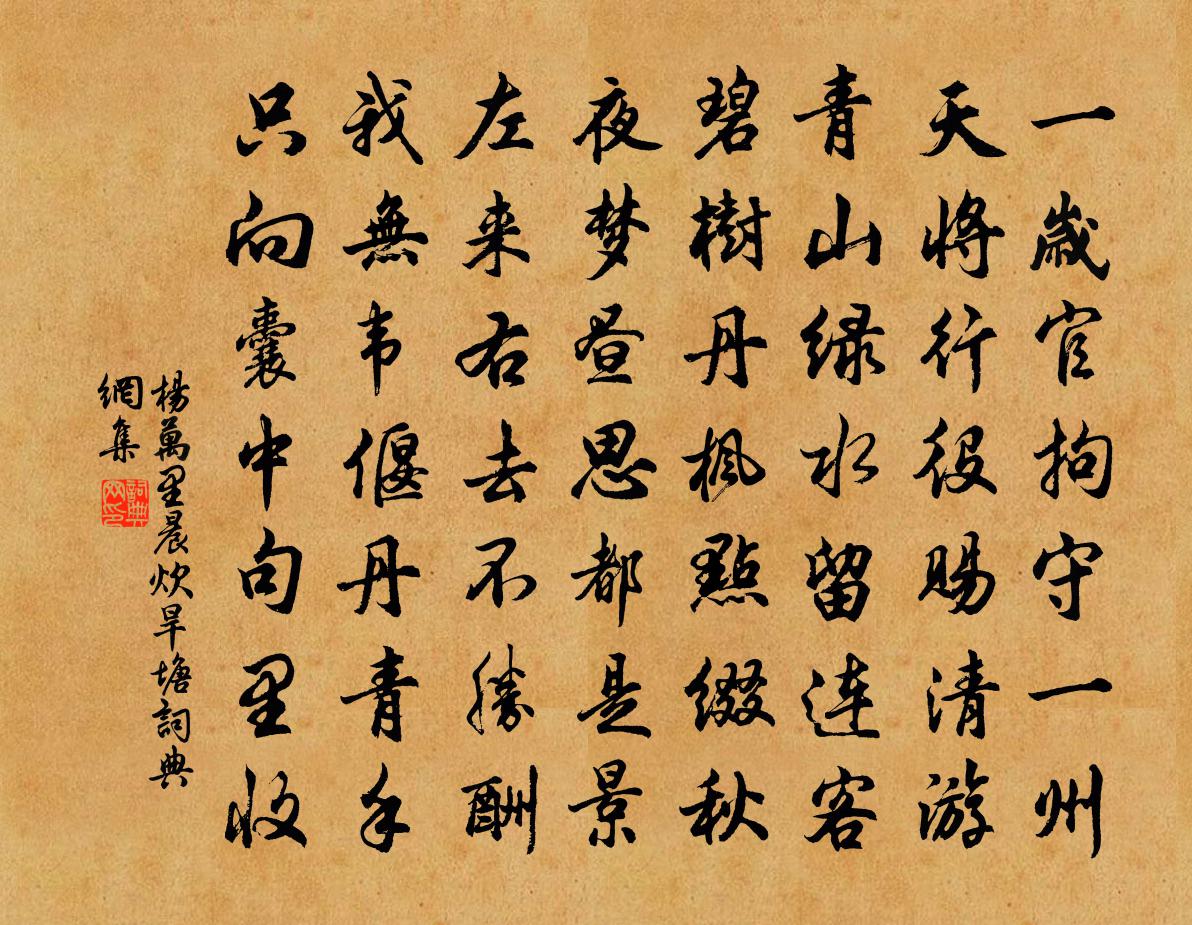 一歲官拘守一州
天將行役賜清游
青山绿水留连客
碧樹丹楓點缀秋
夜梦昼思都是景
左来右去不勝酬
我無韦偃丹青手
只向囊中句里收
楊萬里晨炊旱塘詞典
網集
詞典
网印